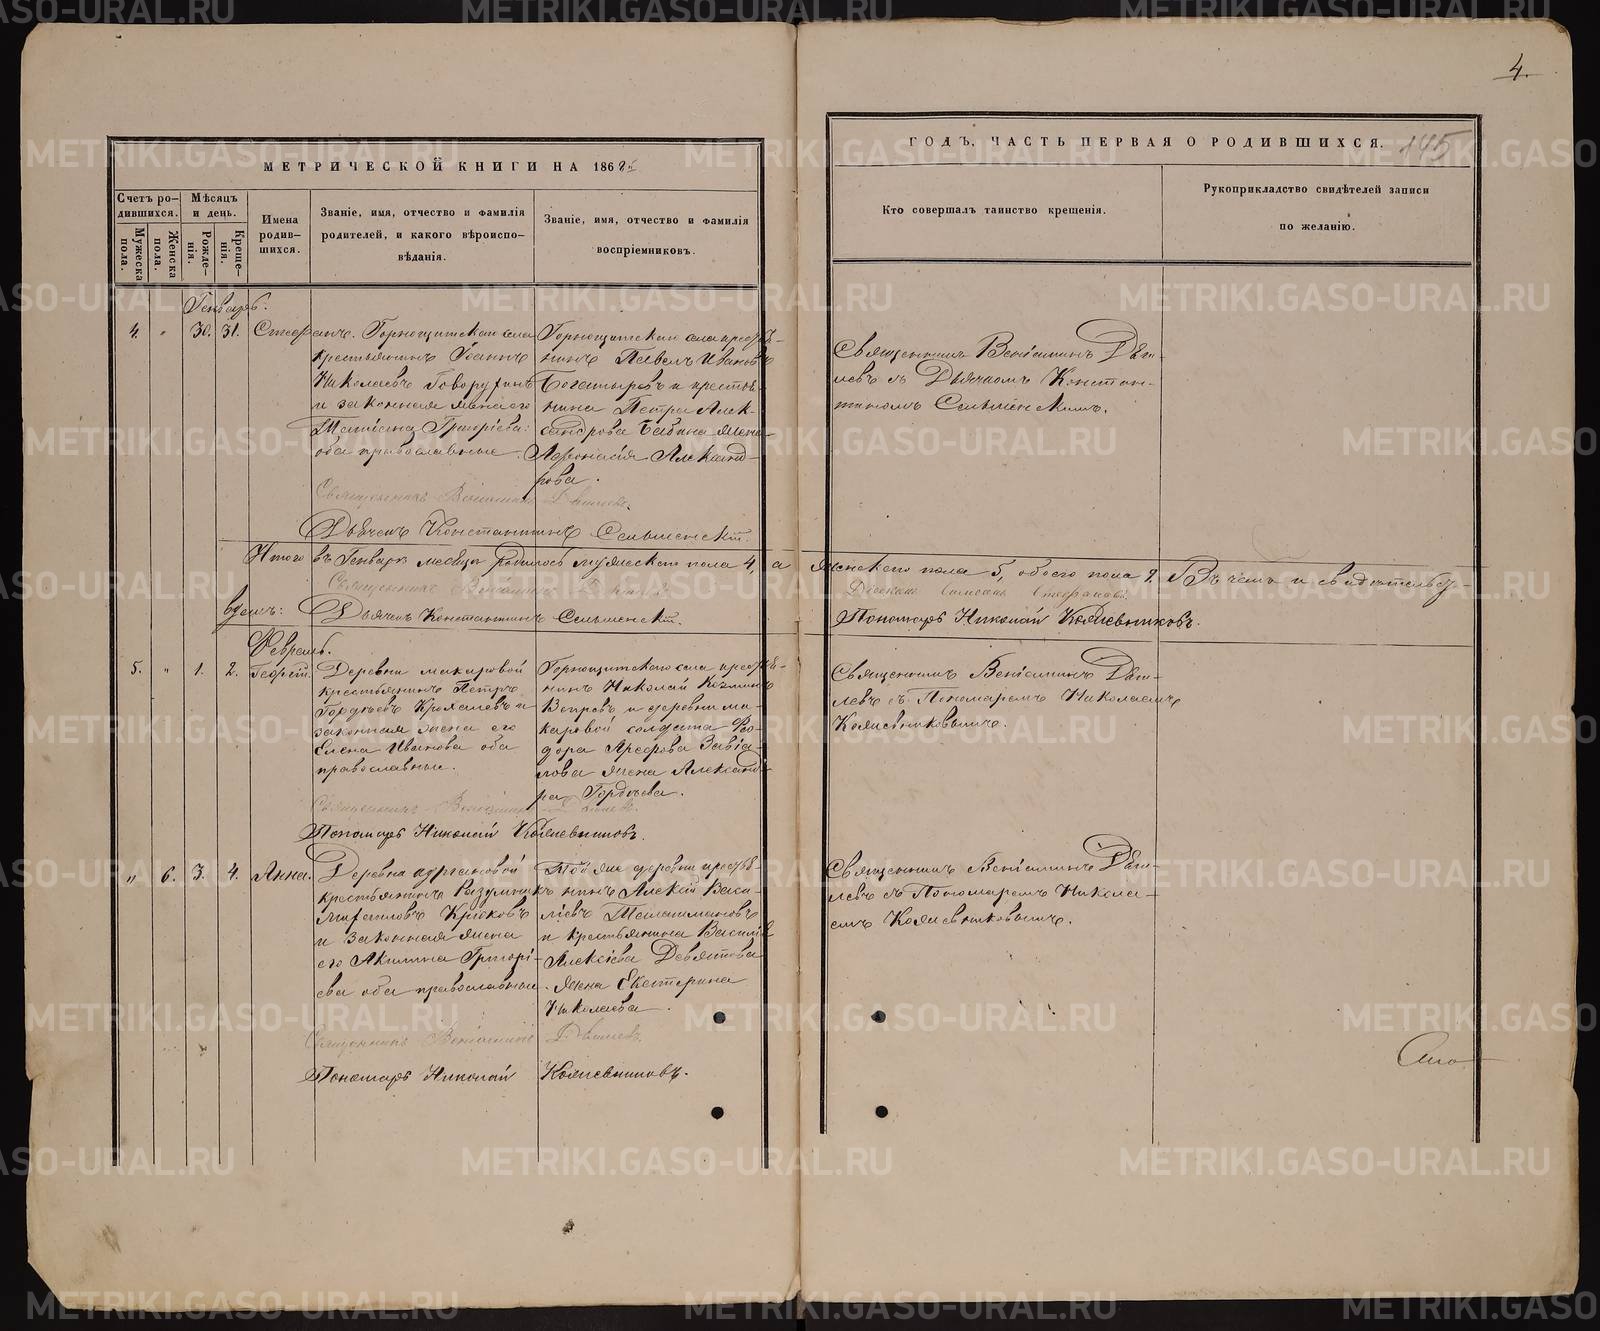 4.
145
МЕТРИЧЕСКОЙ КНИГИ НА 1868й
ГОДЪ, ЧАСТЬ ПЕРВАЯ О РОДИВШИХСЯ.
Счетъ ро-
дившихся.
Мужеска
пола.
Женска
пола.
Мѣсяцъ
и день.
Рожде-
нія.
Креще-
нія.
Имена
родив-
шихся.
Званіе, имя, отчество и фамилія
родителей, и какого вѣроиспо-
вѣданія.
Званіе, имя, отчество и фамилія
воспріемниковъ.
Кто совершалъ таинство крещенія.
Рукоприкладство свидѣтелей записи
по желанію.
Генварь.
4. " 30. 31. Стефанъ.
Горнощитскаго села
крестьянинъ Іоаннъ
Николаевъ Говорухинъ
и законная жена его
Татіана Григоріева:
оба православные.
Горнощитскаго села крестья-
нинъ Павелъ Ивановъ
Богатыревъ и крестья-
нина Петра Алек-
сандрова Бабина жена
Афонасія Александ-
рова.
Священникъ Веніаминъ
левъ съ Дьячкомъ Констан-
тиномъ
Священникъ Веніаминъ
Дьячекъ Константинъ
Итого въ Генварѣ месяцѣ родилось мужескаго пола 4, а женскаго пола 5, обоего пола 9. Въ чемъ и свидѣтельству-
емъ:
Священникъ Веніаминъ
Дьячекъ Константинъ
Діаконъ Стефановъ
Пономарь Николай Кожевниковъ.
Февраль.
5. " 1. 2. Георгій.
Деревни макаровой
крестьянинъ Петръ
Гордѣевъ и
законная жена его
Елена Иванова оба
православные.
Горнощитскаго села крестья-
нинъ Николай Козминъ
и деревни ма-
каровой солдата Фео-
дора Арефова Завья-
лова жена Александ-
ра Гордѣева.
Священникъ Веніаминъ
левъ съ Пономаремъ Николаемъ
Кожевниковымъ.
Священникъ Веніаминъ
Пономарь Николай Кожевниковъ.
" 6. 3. 4. Анна.
Деревни кургановой
крестьянинъ Разумникъ
Михаиловъ Крюковъ
и законная жена
его Акилина Григорі-
ева оба православные
Той же деревни крестья-
нинъ Алексій Васи-
ліевъ Талашмановъ
и крестьянина Василія
Алексіева Девятова
жена Екатерина
Николаева.
Священникъ Веніаминъ
левъ съ Пономаремъ Никола-
емъ Кожевниковымъ.
Священникъ Веніаминъ
Пономарь Николай Кожевниковъ.
METRIKI.GASO-URAL.RU